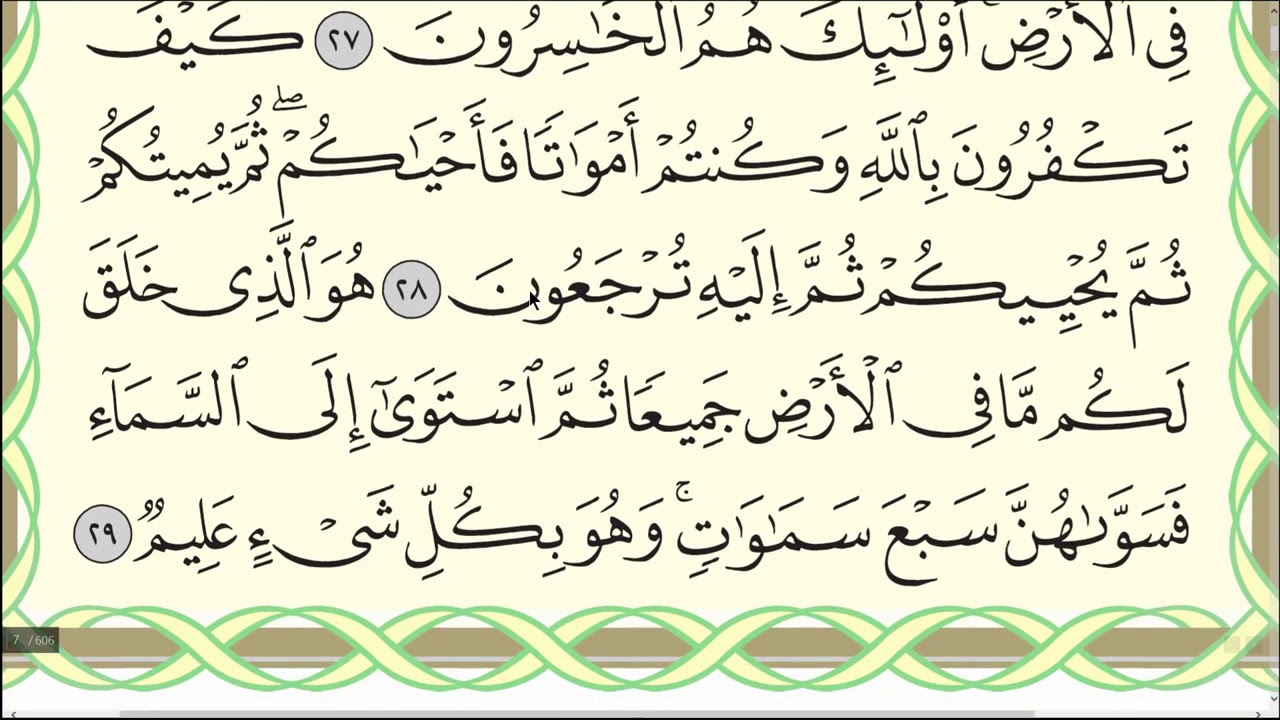 فِى ٱلْأَرْضِ ۚ أُو۟لَـٰٓئِكَ هُمُ ٱلْخَـٰسِرُونَ ٢٧ كَيْفَ
تَكْفُرُونَ بِٱللَّهِ وَكُنتُمْ أَمْوَٰتًا فَأَحْيَـٰكُمْ ۖ ثُمَّ يُمِيتُكُمْ
ثُمَّ يُحْيِيكُمْ ثُمَّ إِلَيْهِ تُرْجَعُونَ ٢٨ هُوَ ٱلَّذِى خَلَقَ
لَكُم مَّا فِى ٱلْأَرْضِ جَمِيعًا ثُمَّ ٱسْتَوَىٰٓ إِلَى ٱلسَّمَآءِ
فَسَوَّىٰهُنَّ سَبْعَ سَمَـٰوَٰتٍ ۚ وَهُوَ بِكُلِّ شَىْءٍ عَلِيمٌ ٢٩
7 / 606